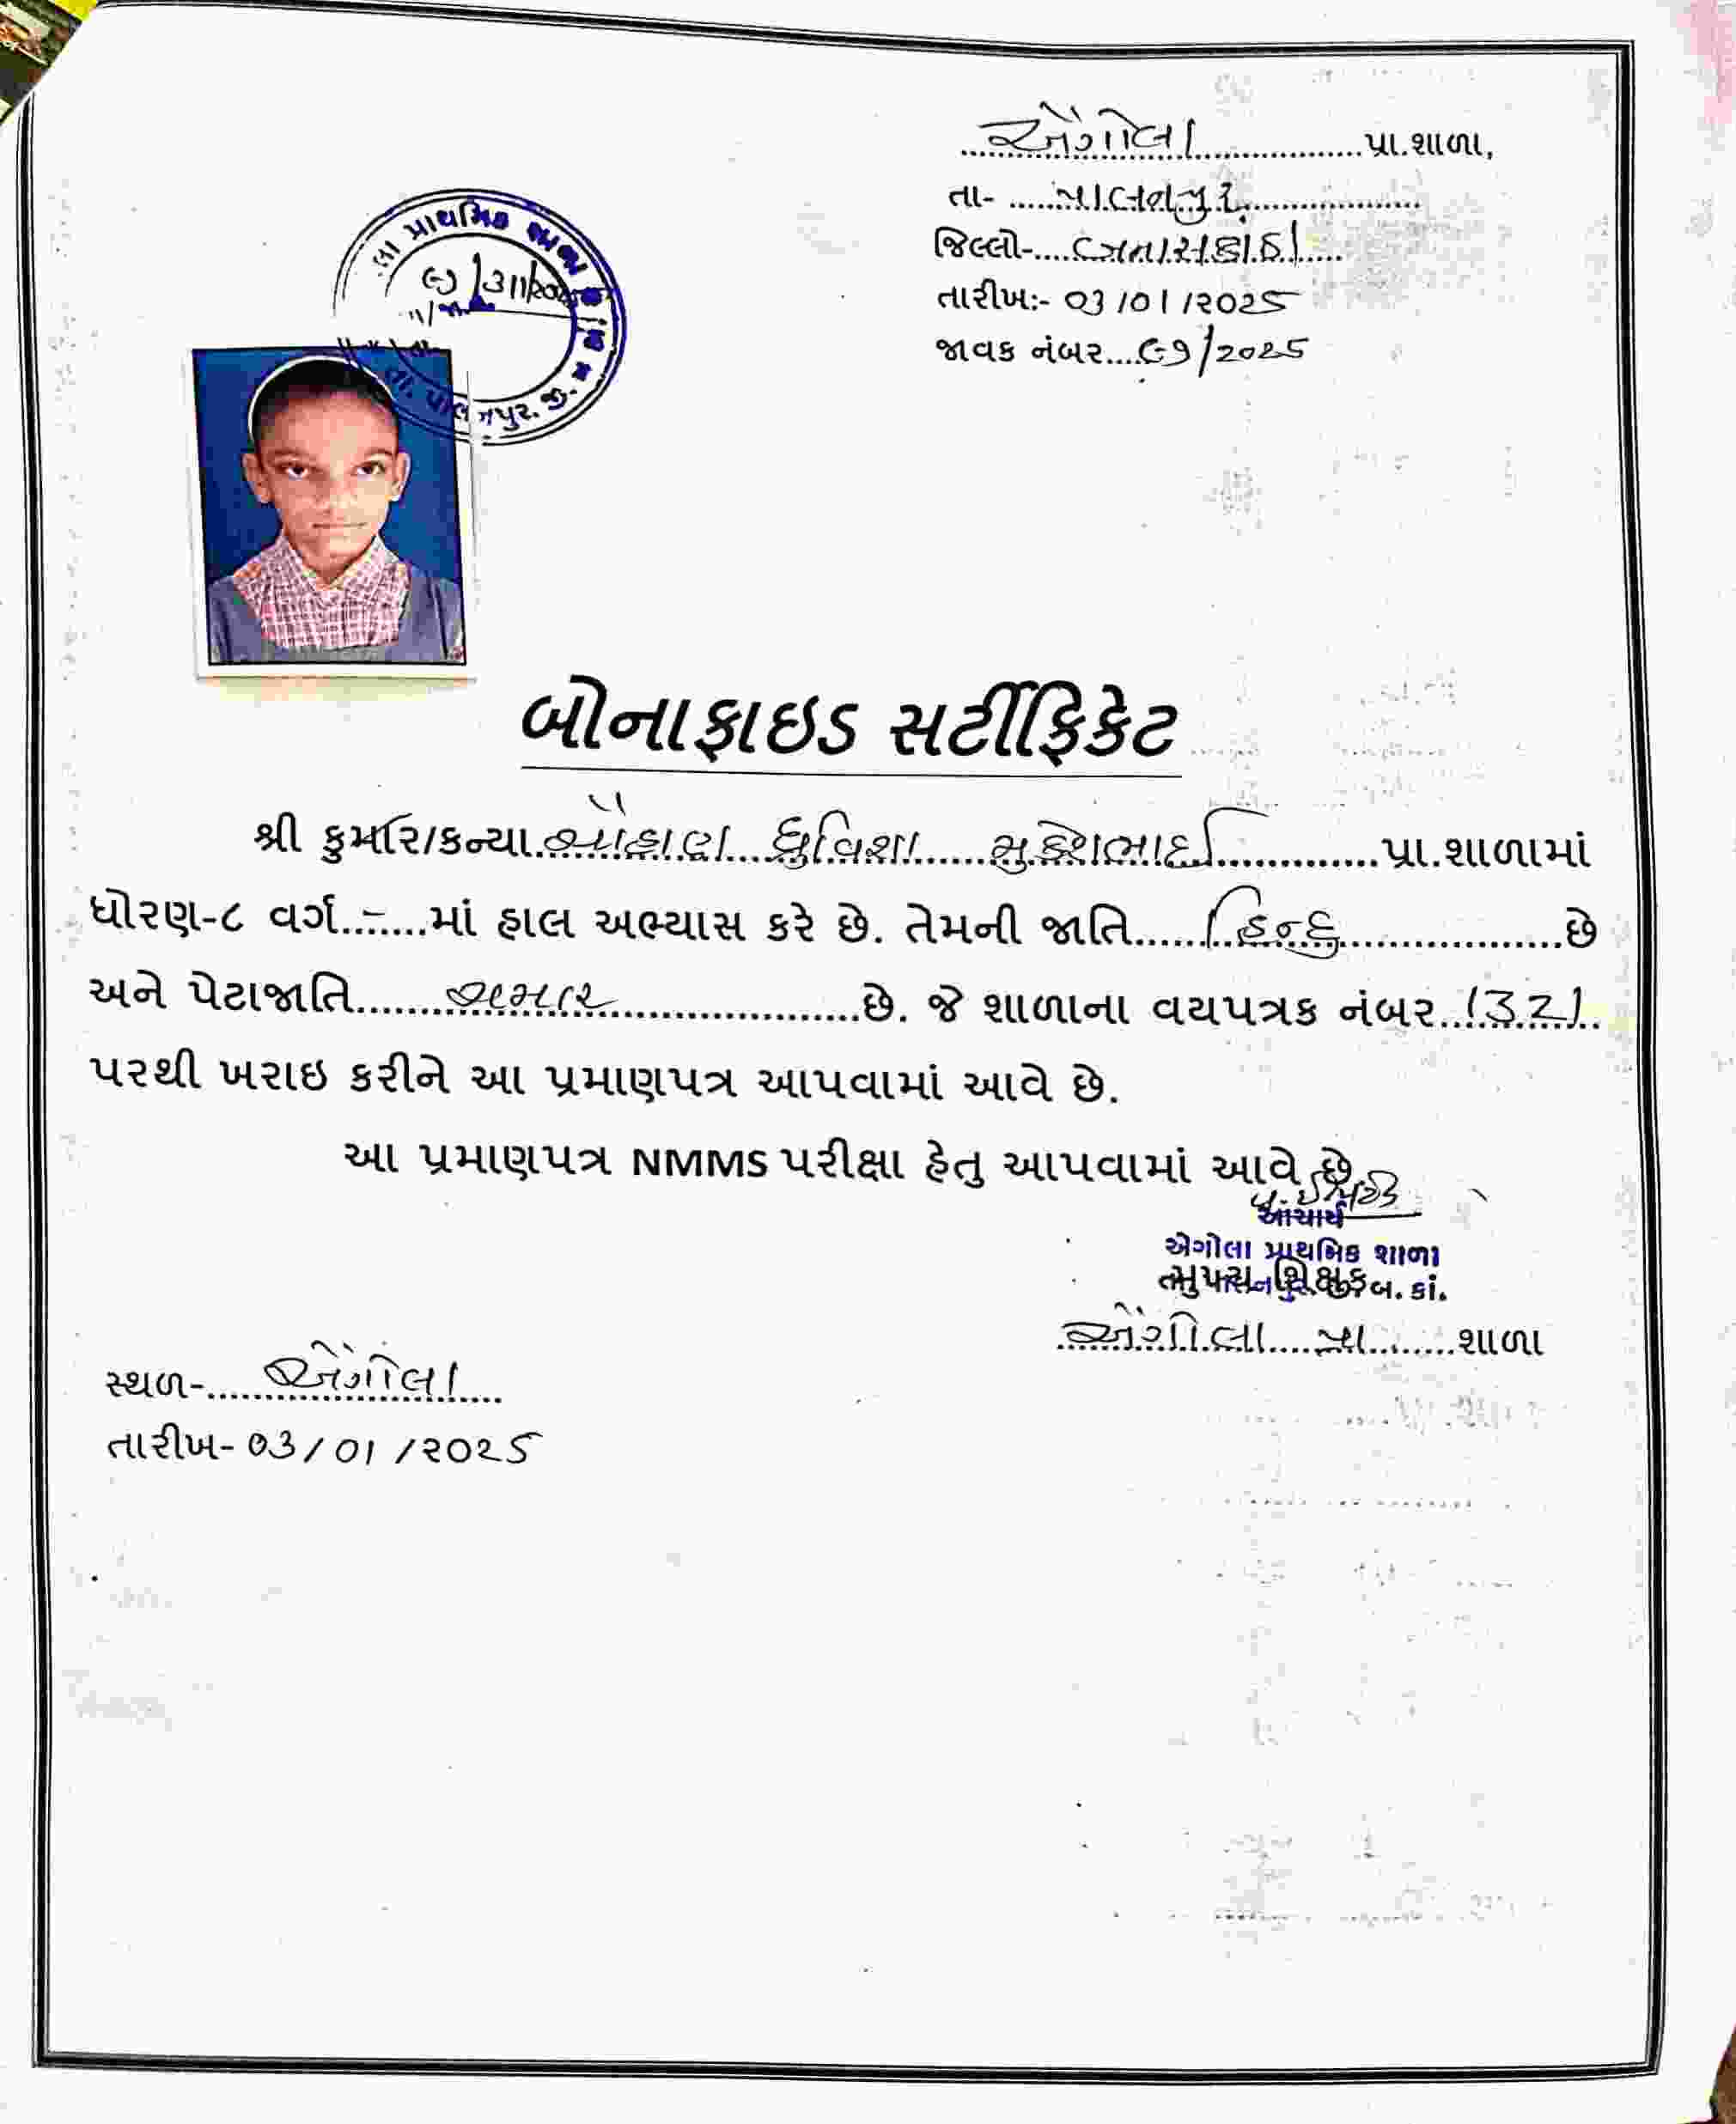 એંગોલા પ્રા.શાળા,
તા- પાલનપુર
જિલ્લો- બનાસકાંઠા
તારીખ:- 03/01/૨૦૨૫
જાવક નંબર ૯૭/૨૦૨૫
લા પ્રાથમિક શાળા
તા. પાલનપુર. જી.
બોનાફાઇડ સર્ટીફિકેટ
શ્રી કુમાર/કન્યા ચૌહાણ ધ્રુવિશા મુકેશભાઈ પ્રા.શાળામાં
ધોરણ-૮ વર્ગ - માં હાલ અભ્યાસ કરે છે. તેમની જાતિ હિન્દુ છે
અને પેટાજાતિ ચમાર છે. જે શાળાના વયપત્રક નંબર 1321
પરથી ખરાઇ કરીને આ પ્રમાણપત્ર આપવામાં આવે છે.
આ પ્રમાણપત્ર NMMS પરીક્ષા હેતુ આપવામાં આવે છે.
આચાર્ય
એગોલા પ્રાથમિક શાળા
મુખ્ય શિક્ષક બ. કાં.
એંગોલા પ્રા શાળા
સ્થળ- એંગોલા
તારીખ- 03/01/૨૦૨૫